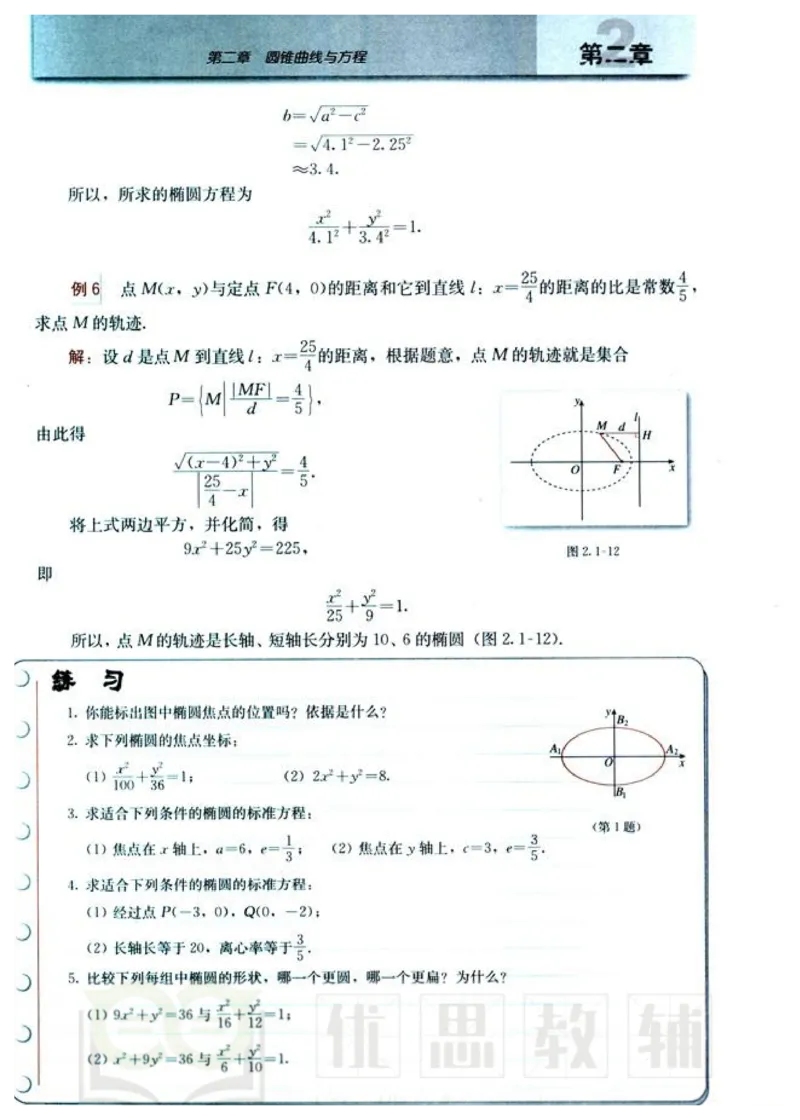 第二章 圆锥曲线与方程
第二章
b=√(a²-c²)
=√(4.1²-2.25²)
≈3.4.
所以，所求的椭圆方程为
x²/4.1²+y²/3.4²=1.
例6 点 M(x，y)与定点 F(4，0)的距离和它到直线 l：x=25/4的距离的比是常数4/5，
求点 M 的轨迹.
解：设 d 是点 M 到直线 l：x=25/4的距离，根据题意，点 M 的轨迹就是集合
P={M| |MF|/d=4/5}，
由此得
√((x-4)²+y²)/|25/4-x|=4/5.
将上式两边平方，并化简，得
9x²+25y²=225，
即
x²/25+y²/9=1.
所以，点 M 的轨迹是长轴、短轴长分别为 10、6 的椭圆（图 2.1-12）.
y
M d l
H
O F x
图 2.1-12
练 习
1. 你能标出图中椭圆焦点的位置吗？依据是什么？
2. 求下列椭圆的焦点坐标：
(1) x²/100+y²/36=1； (2) 2x²+y²=8.
3. 求适合下列条件的椭圆的标准方程：
(1) 焦点在 x 轴上，a=6，e=1/3； (2) 焦点在 y 轴上，c=3，e=3/5.
4. 求适合下列条件的椭圆的标准方程：
(1) 经过点 P(-3，0)，Q(0，-2)；
(2) 长轴长等于 20，离心率等于3/5.
5. 比较下列每组中椭圆的形状，哪一个更圆，哪一个更扁？为什么？
(1) 9x²+y²=36 与 x²/16+y²/12=1；
(2) x²+9y²=36 与 x²/6+y²/10=1.
y B₂
A₁ O A₂ x
B₁
（第 1 题）
优思教辅